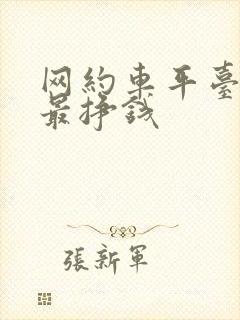 网約車平臺
最挣钱
張新軍